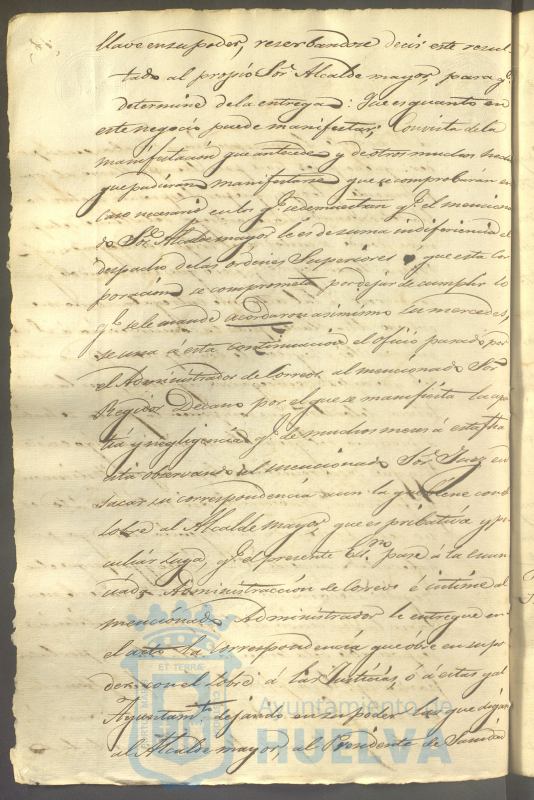 llave en su poder, reserbandose decir este resul-
tado al propio Sor. Alcalde mayor, para q.
determine de la entrega: Que es quanto en
este negocio puede manifestar; Con vista de la
manifestacion que antecede y de otros muchos hechos
que pudieran manifestarse que se comprobarán en
caso necesario en los q. se demuestran q. el menciona-
do Sor. Alcalde mayor le es de suma indiferiencia el
despacho de las ordenes Superiores que esta cor
poracion se comprometa por dejar de cumplir lo
q. se le mande acordaron asimismo sus mercedes,
se una á esta continuacion el oficio pasado por
el Administrador de Correos al mencionado Sor.
Regidor Decano por el que se manifiesta la apa
tia y negligencia q. de muchos meses á esta
está observando el mencionado Sor. Juez en
sacar su correspondencia aun la que viene con
sobre al Alcalde mayor que es pribativa y pe
culiar suya y q. el presente Esno. pase á la enun
ciada Administracion de Correos é intime al
mencionado Administrador le entregue en
el acto la correspondencia que obre en su po
der con el sobre á las Justicias, ó á estas y al
Ayuntamto. dejando en su poder las que digan
al Alcalde mayor, al Presidente de Sanidad
ET TERRAE
Ayuntamiento de
HUELVA